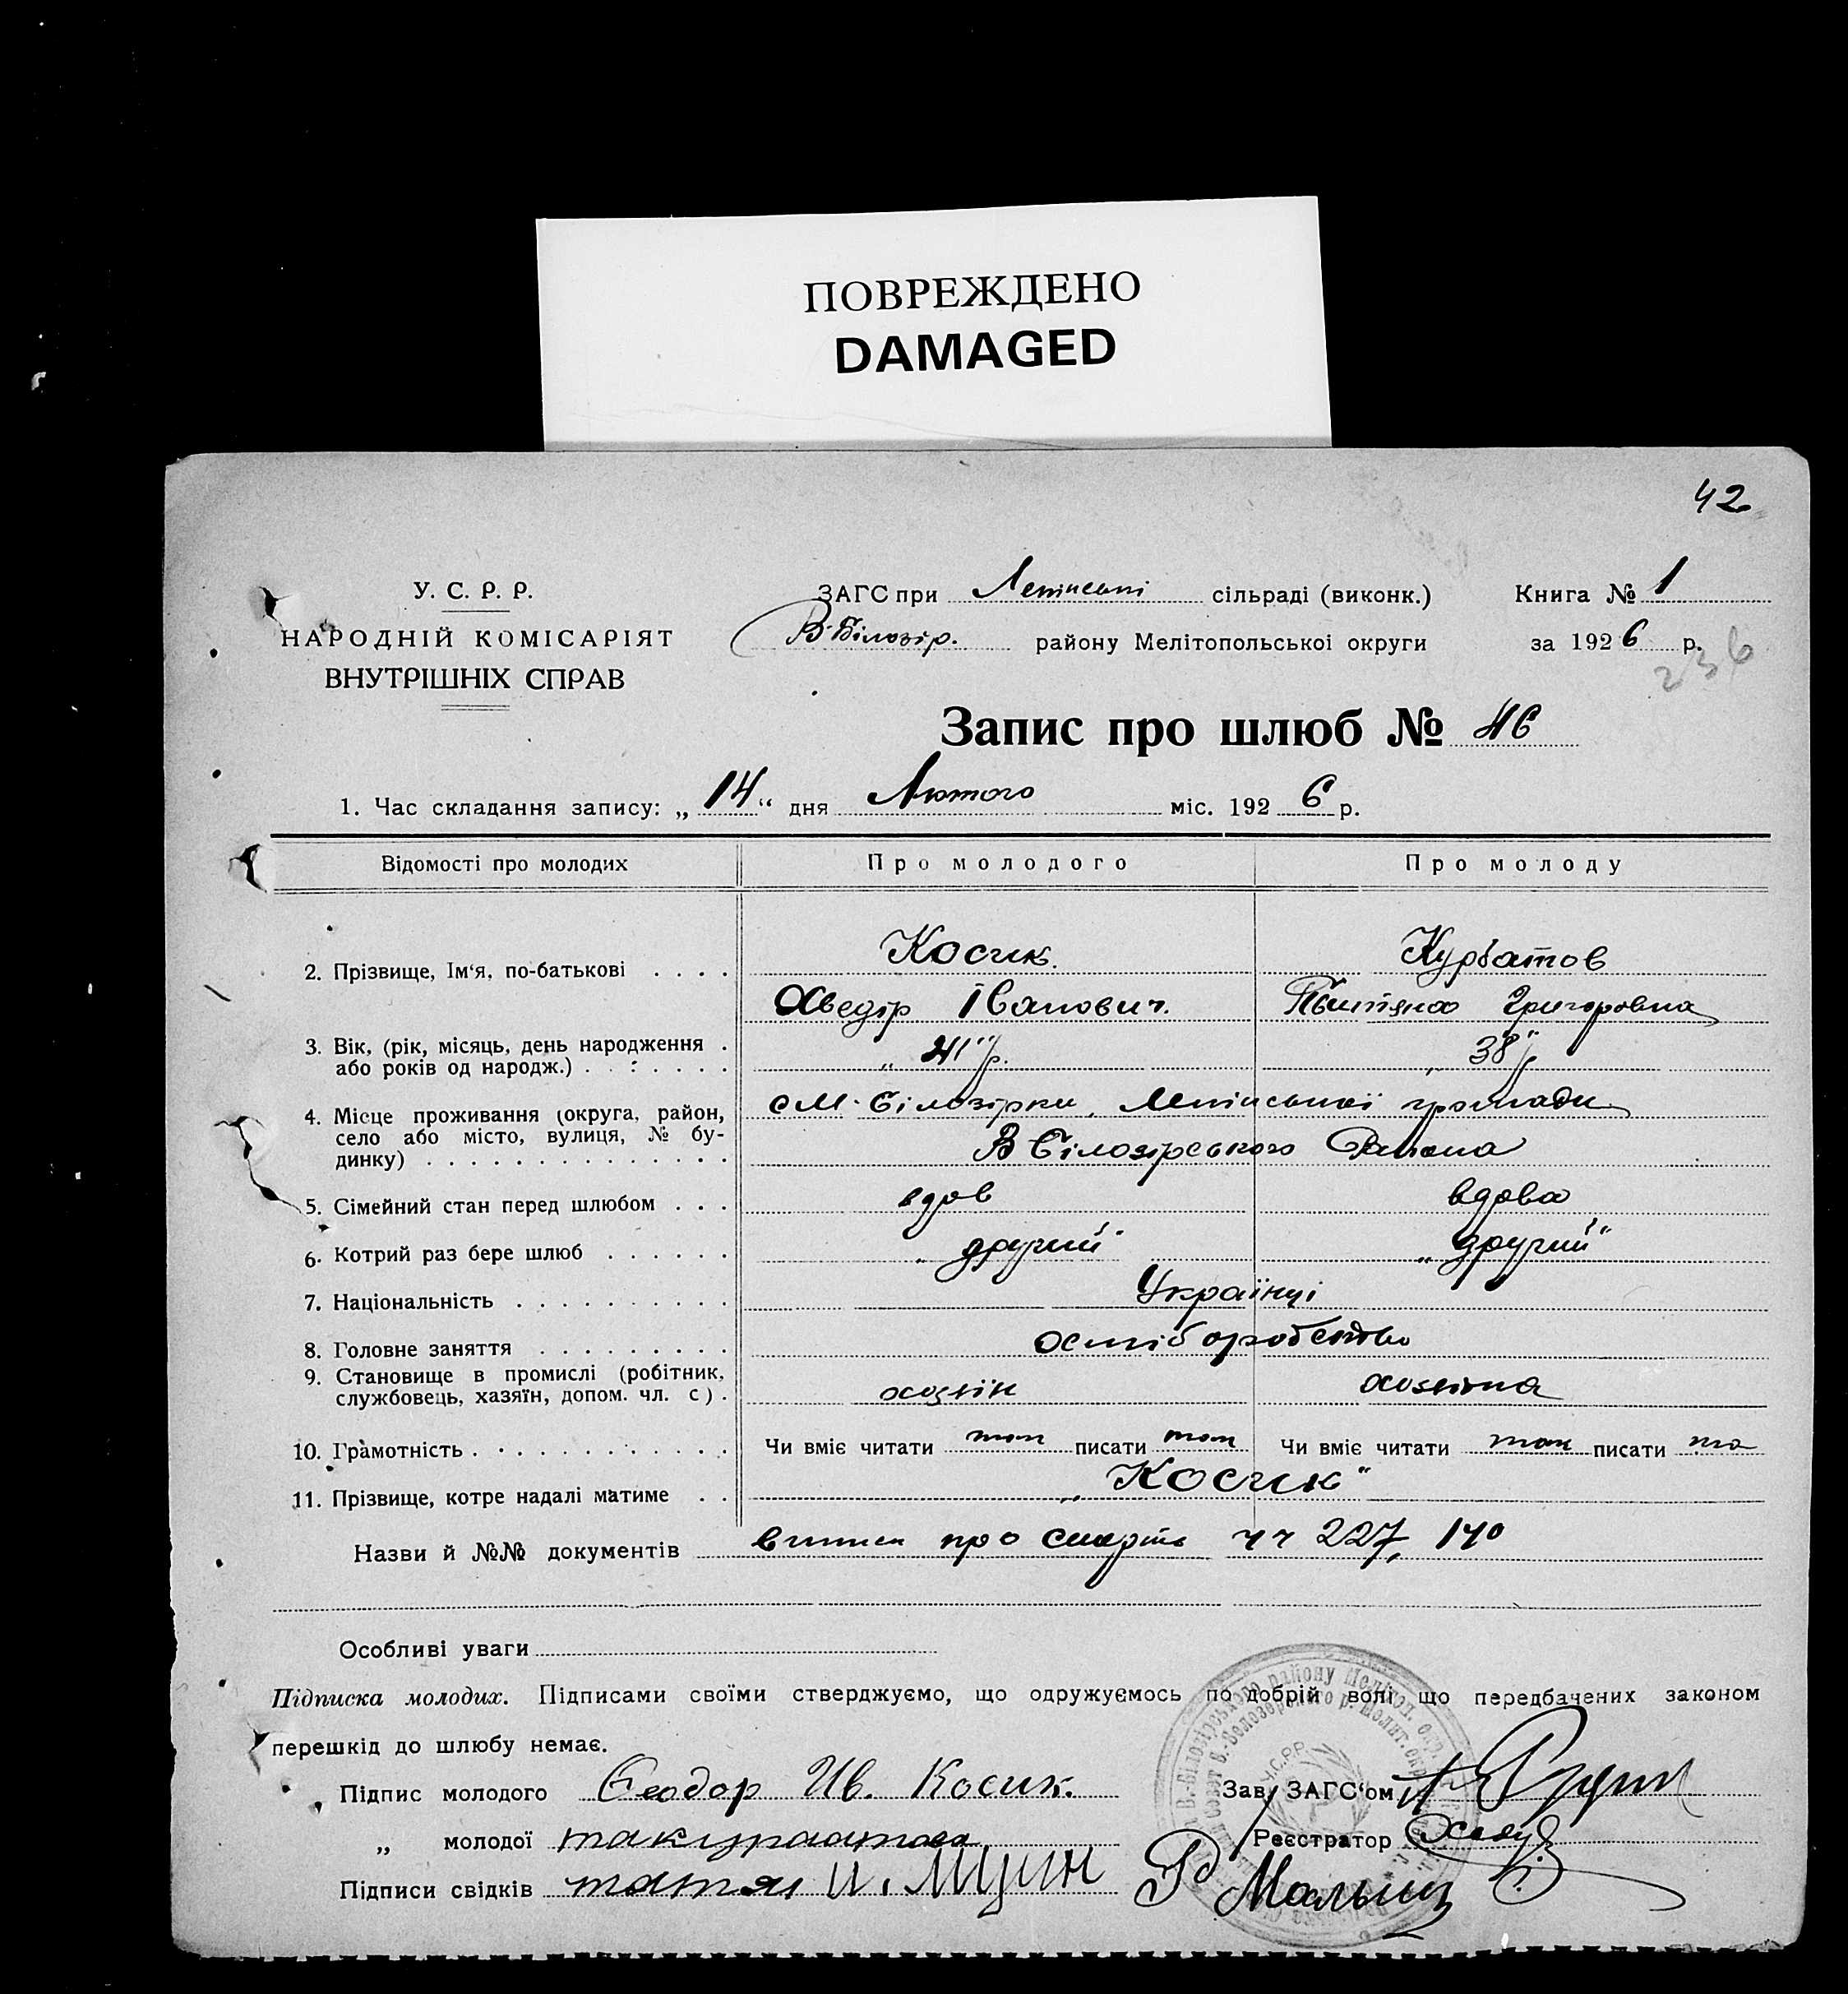 ПОВРЕЖДЕНО
DAMAGED
42
У. С. Р. Р.
НАРОДНІЙ КОМІСАРІЯТ
ВНУТРІШНІХ СПРАВ
ЗАГС при сільраді (виконк.)
В-Білозір. району Мелітопольскої округи
Книга № 1
за 1926 р.
236
Запис про шлюб № 46
1. Час складання запису: „14“ дня Лютого міс. 1926 р.
Відомості про молодих Про молодого Про молоду
2. Прізвище, Ім'я, по-батькові . . . . Косик. Курбатов
Хведір Іванович. Григоровна
3. Вік, (рік, місяць, день народження .
або років од народж.) . . . . . . . „41" р. „38"
4. Місце проживання (округа, район,
село або місто, вулиця, № бу-
динку) . . . . . . . . . . . . . .
с М. Білозірки, громади
В Білозірського Района
5. Сімейний стан перед шлюбом . . . вдов вдова
6. Котрий раз бере шлюб . . . . . . „другий" „другий"
7. Національність . . . . . . . . . . Українці
8. Головне заняття . . . . . . . . .
9. Становище в промислі (робітник,
службовець, хазяїн, допом. чл. с) .
хозяїн
10. Грамотність . . . . . . . . . . . Чи вміє читати так писати так Чи вміє читати так писати та
11. Прізвище, котре надалі матиме . . „Косик"
Назви й №№ документів про смерть чч 227, 140
Особливі уваги
Підписка молодих. Підписами своїми стверджуємо, що одружуємось по добрій волі що передбачених законом
перешкід до шлюбу немає.
Підпис молодого Феодор Ив. Косик.
Зав. ЗАГС'ом
„ молодої
Реєстратор
Підписи свідків